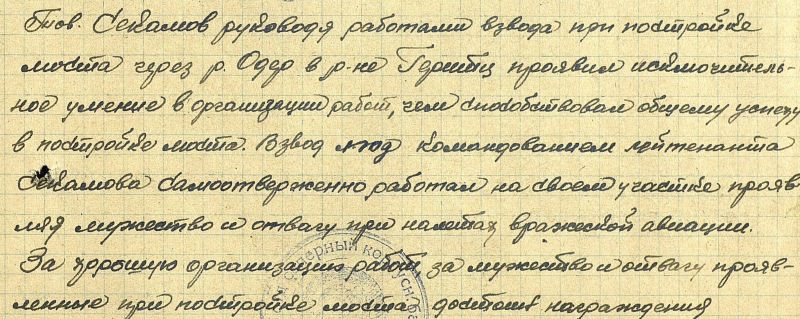 Тов. Секамов руководя работами взвода при постройке
моста через р. Одер в р-не Геритц проявил исключитель-
ное умение в организации работ, чем способствовал общему успеху
в постройке моста. Взвод под командованием лейтенанта
Секамова самоотверженно работал на своем участке прояв-
ляя мужество и отвагу при налетах вражеской авиации.
За хорошую организацию работ, за мужество и отвагу прояв-
ленные при постройке моста достоин награждения